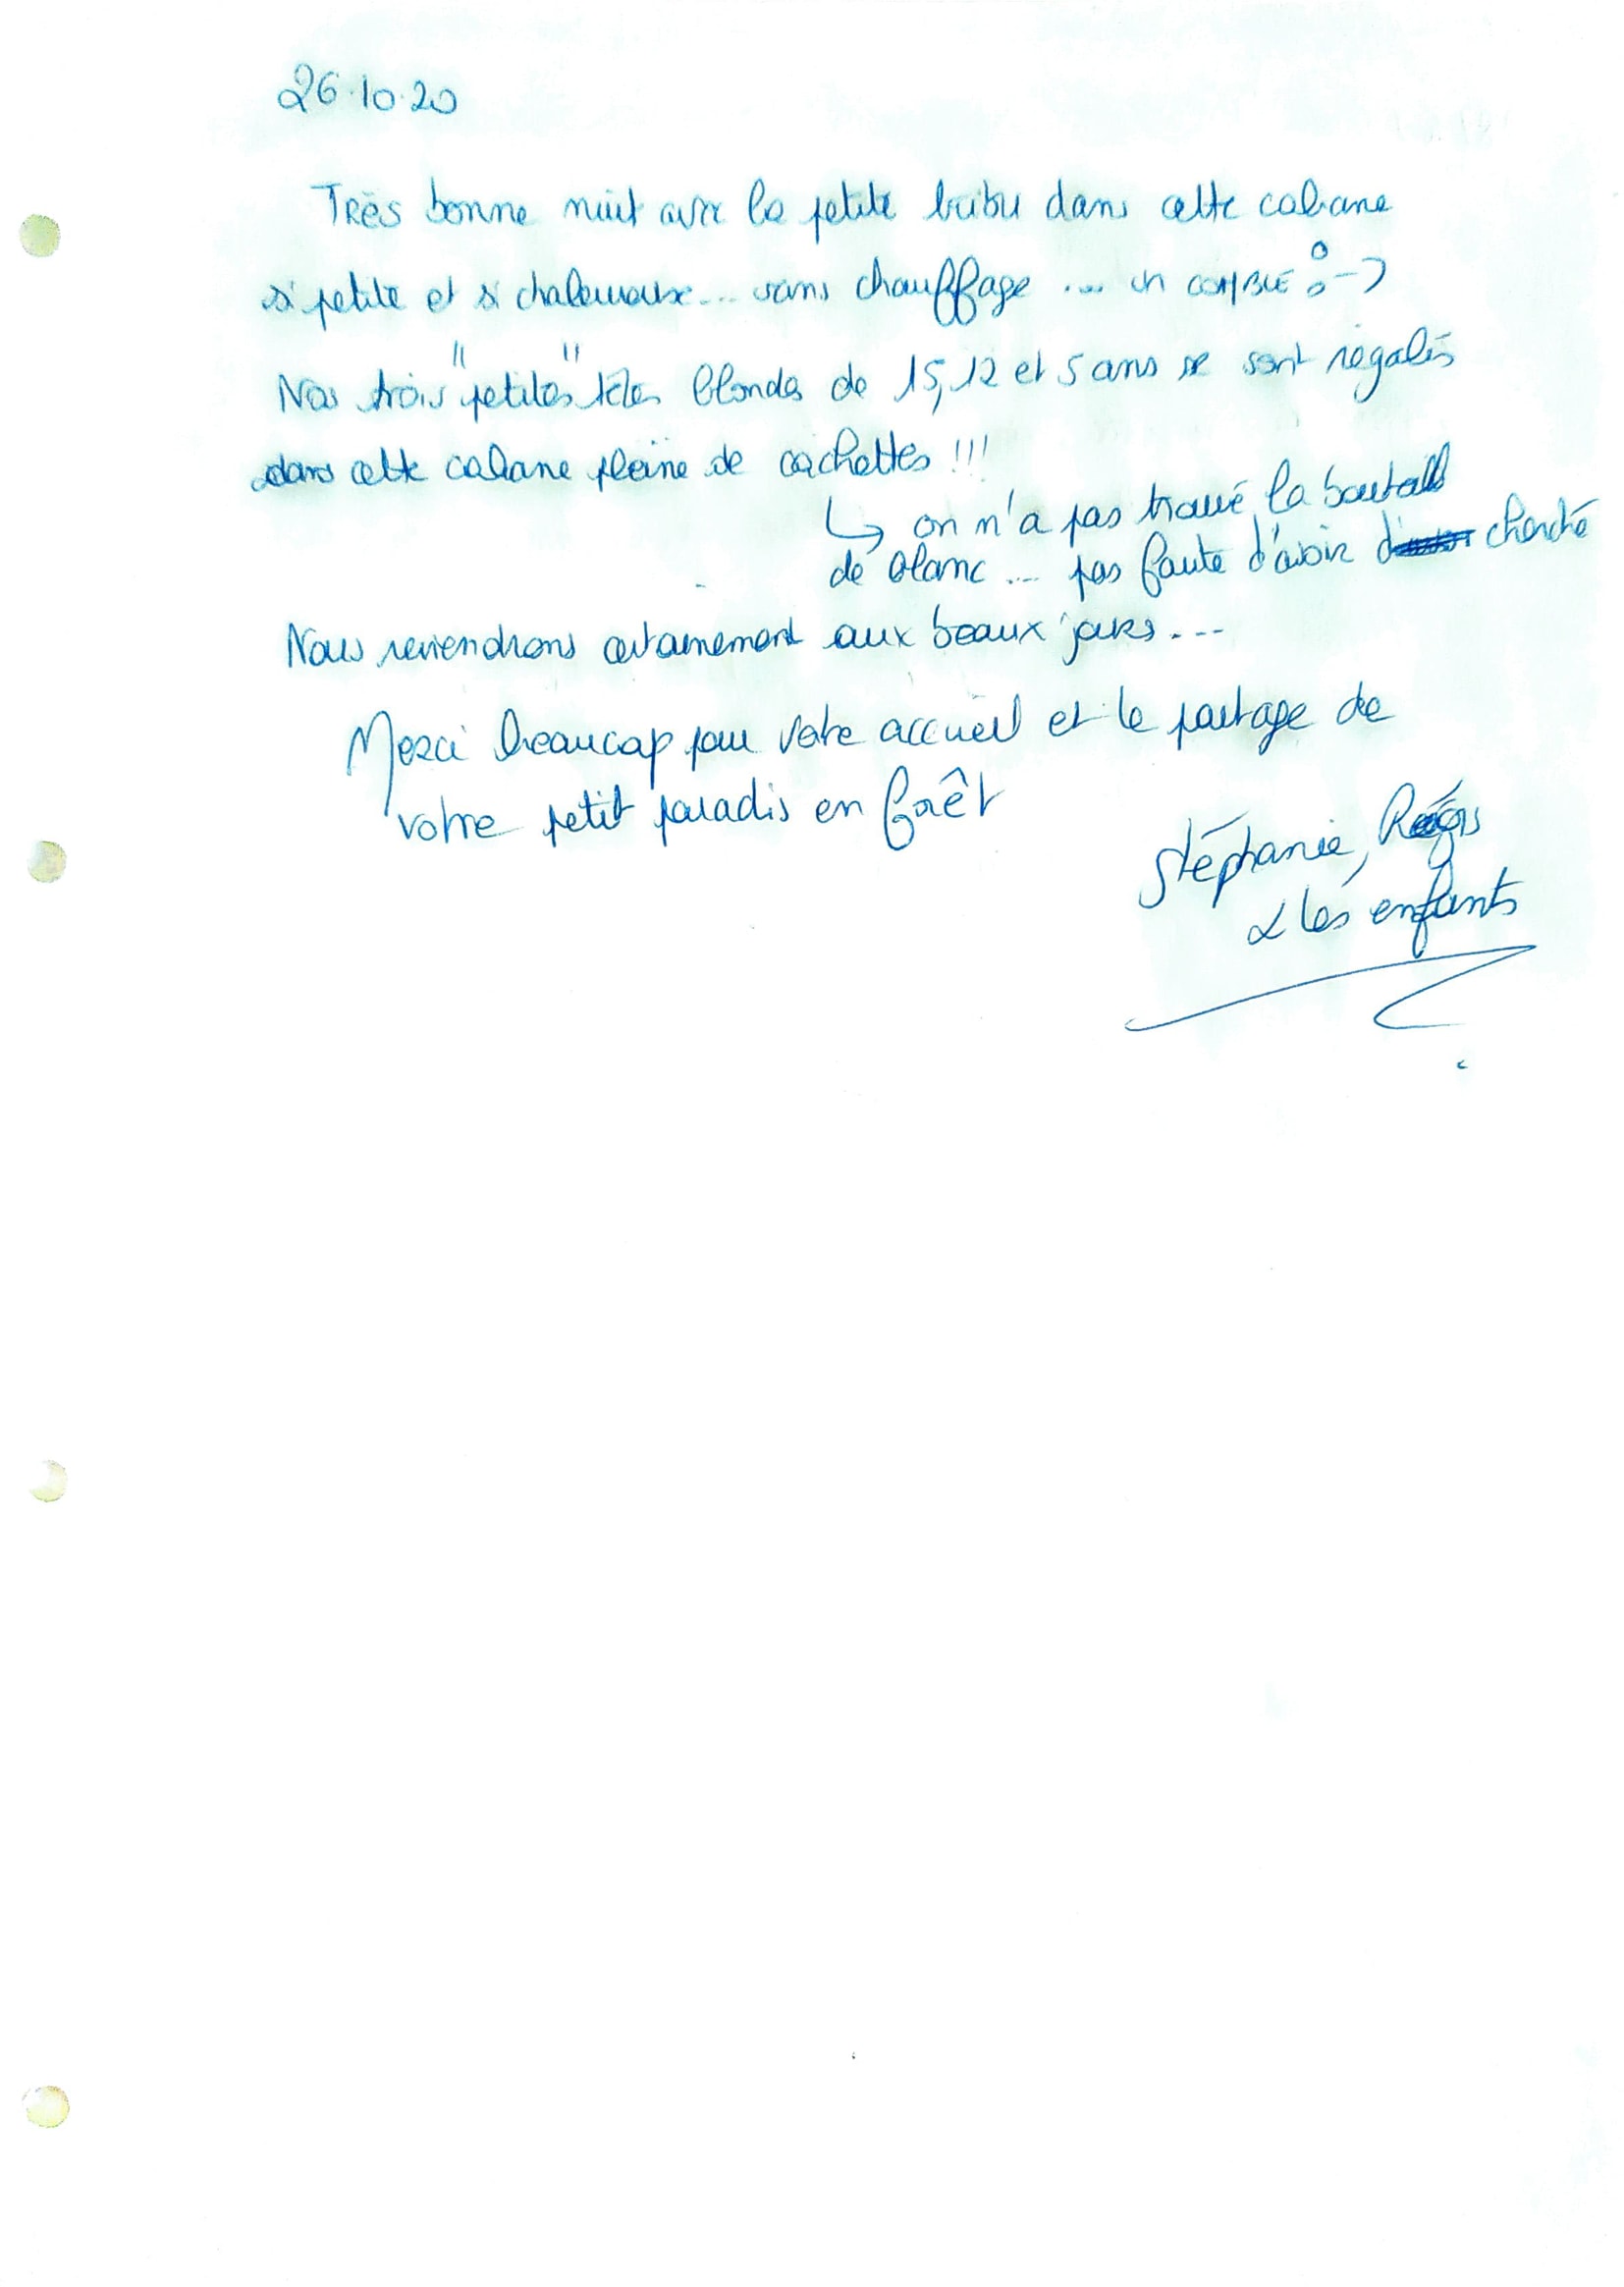 26.10.20
Très bonne nuit avec la petite tribu dans cette cabane
si petite et si chaleureuse... sans chauffage ... un COMBLE :-)
Nos trois "petites" têtes blondes de 15, 12 et 5 ans se sont régalés
dans cette cabane pleine de cachettes !!!
↳ on n'a pas trouvé la bouteille
de blanc ... pas faute d'avoir cherché
Nous reviendrons certainement aux beaux jours...
Merci beaucoup pour votre accueil et le partage de
votre petit paradis en forêt
Stéphanie, Régis
& les enfants